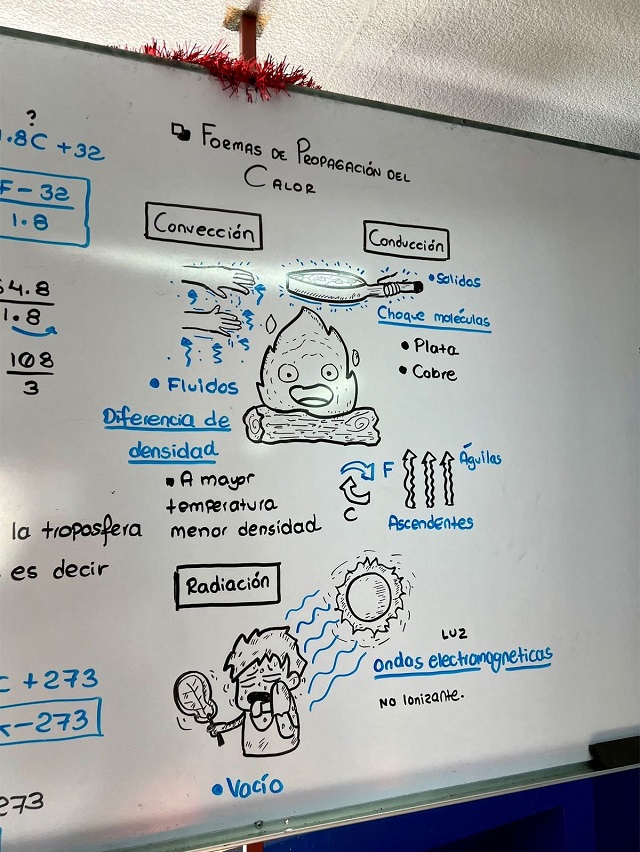 ?
.8C + 32
F - 32
1.8
4.8
1.8
108
3
la troposfera
es decir
C + 273
- 273
273
Formas de Propagación del
Calor
Convección
Fluidos
Diferencia de
densidad
A mayor
temperatura
menor densidad
Conducción
Solidos
Choque moléculas
Plata
Cobre
F
C
Águilas
Ascendentes
Radiación
LUZ
Ondas electromagneticas
No Ionizante.
Vacío